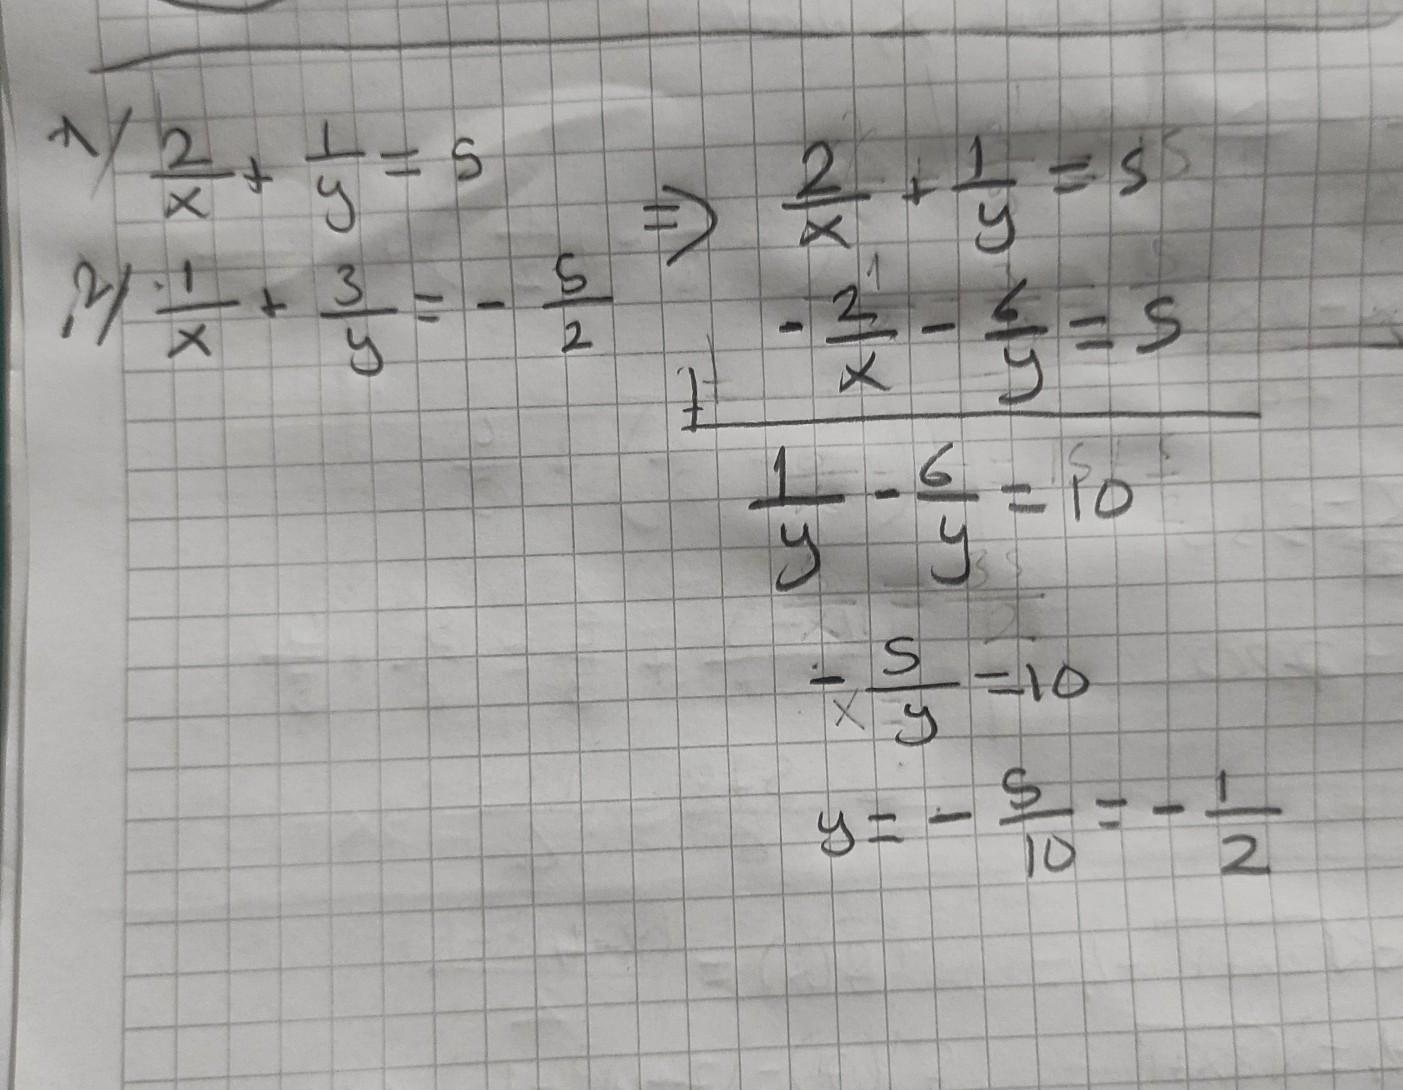 1/ 2/x + 1/y = 5
2/ 1/x + 3/y = - 5/2
⇒ 2/x + 1/y = 5
- 2/x - 6/y = 5
+
1/y - 6/y = 10
- 5/y = 10
y = - 5/10 = - 1/2